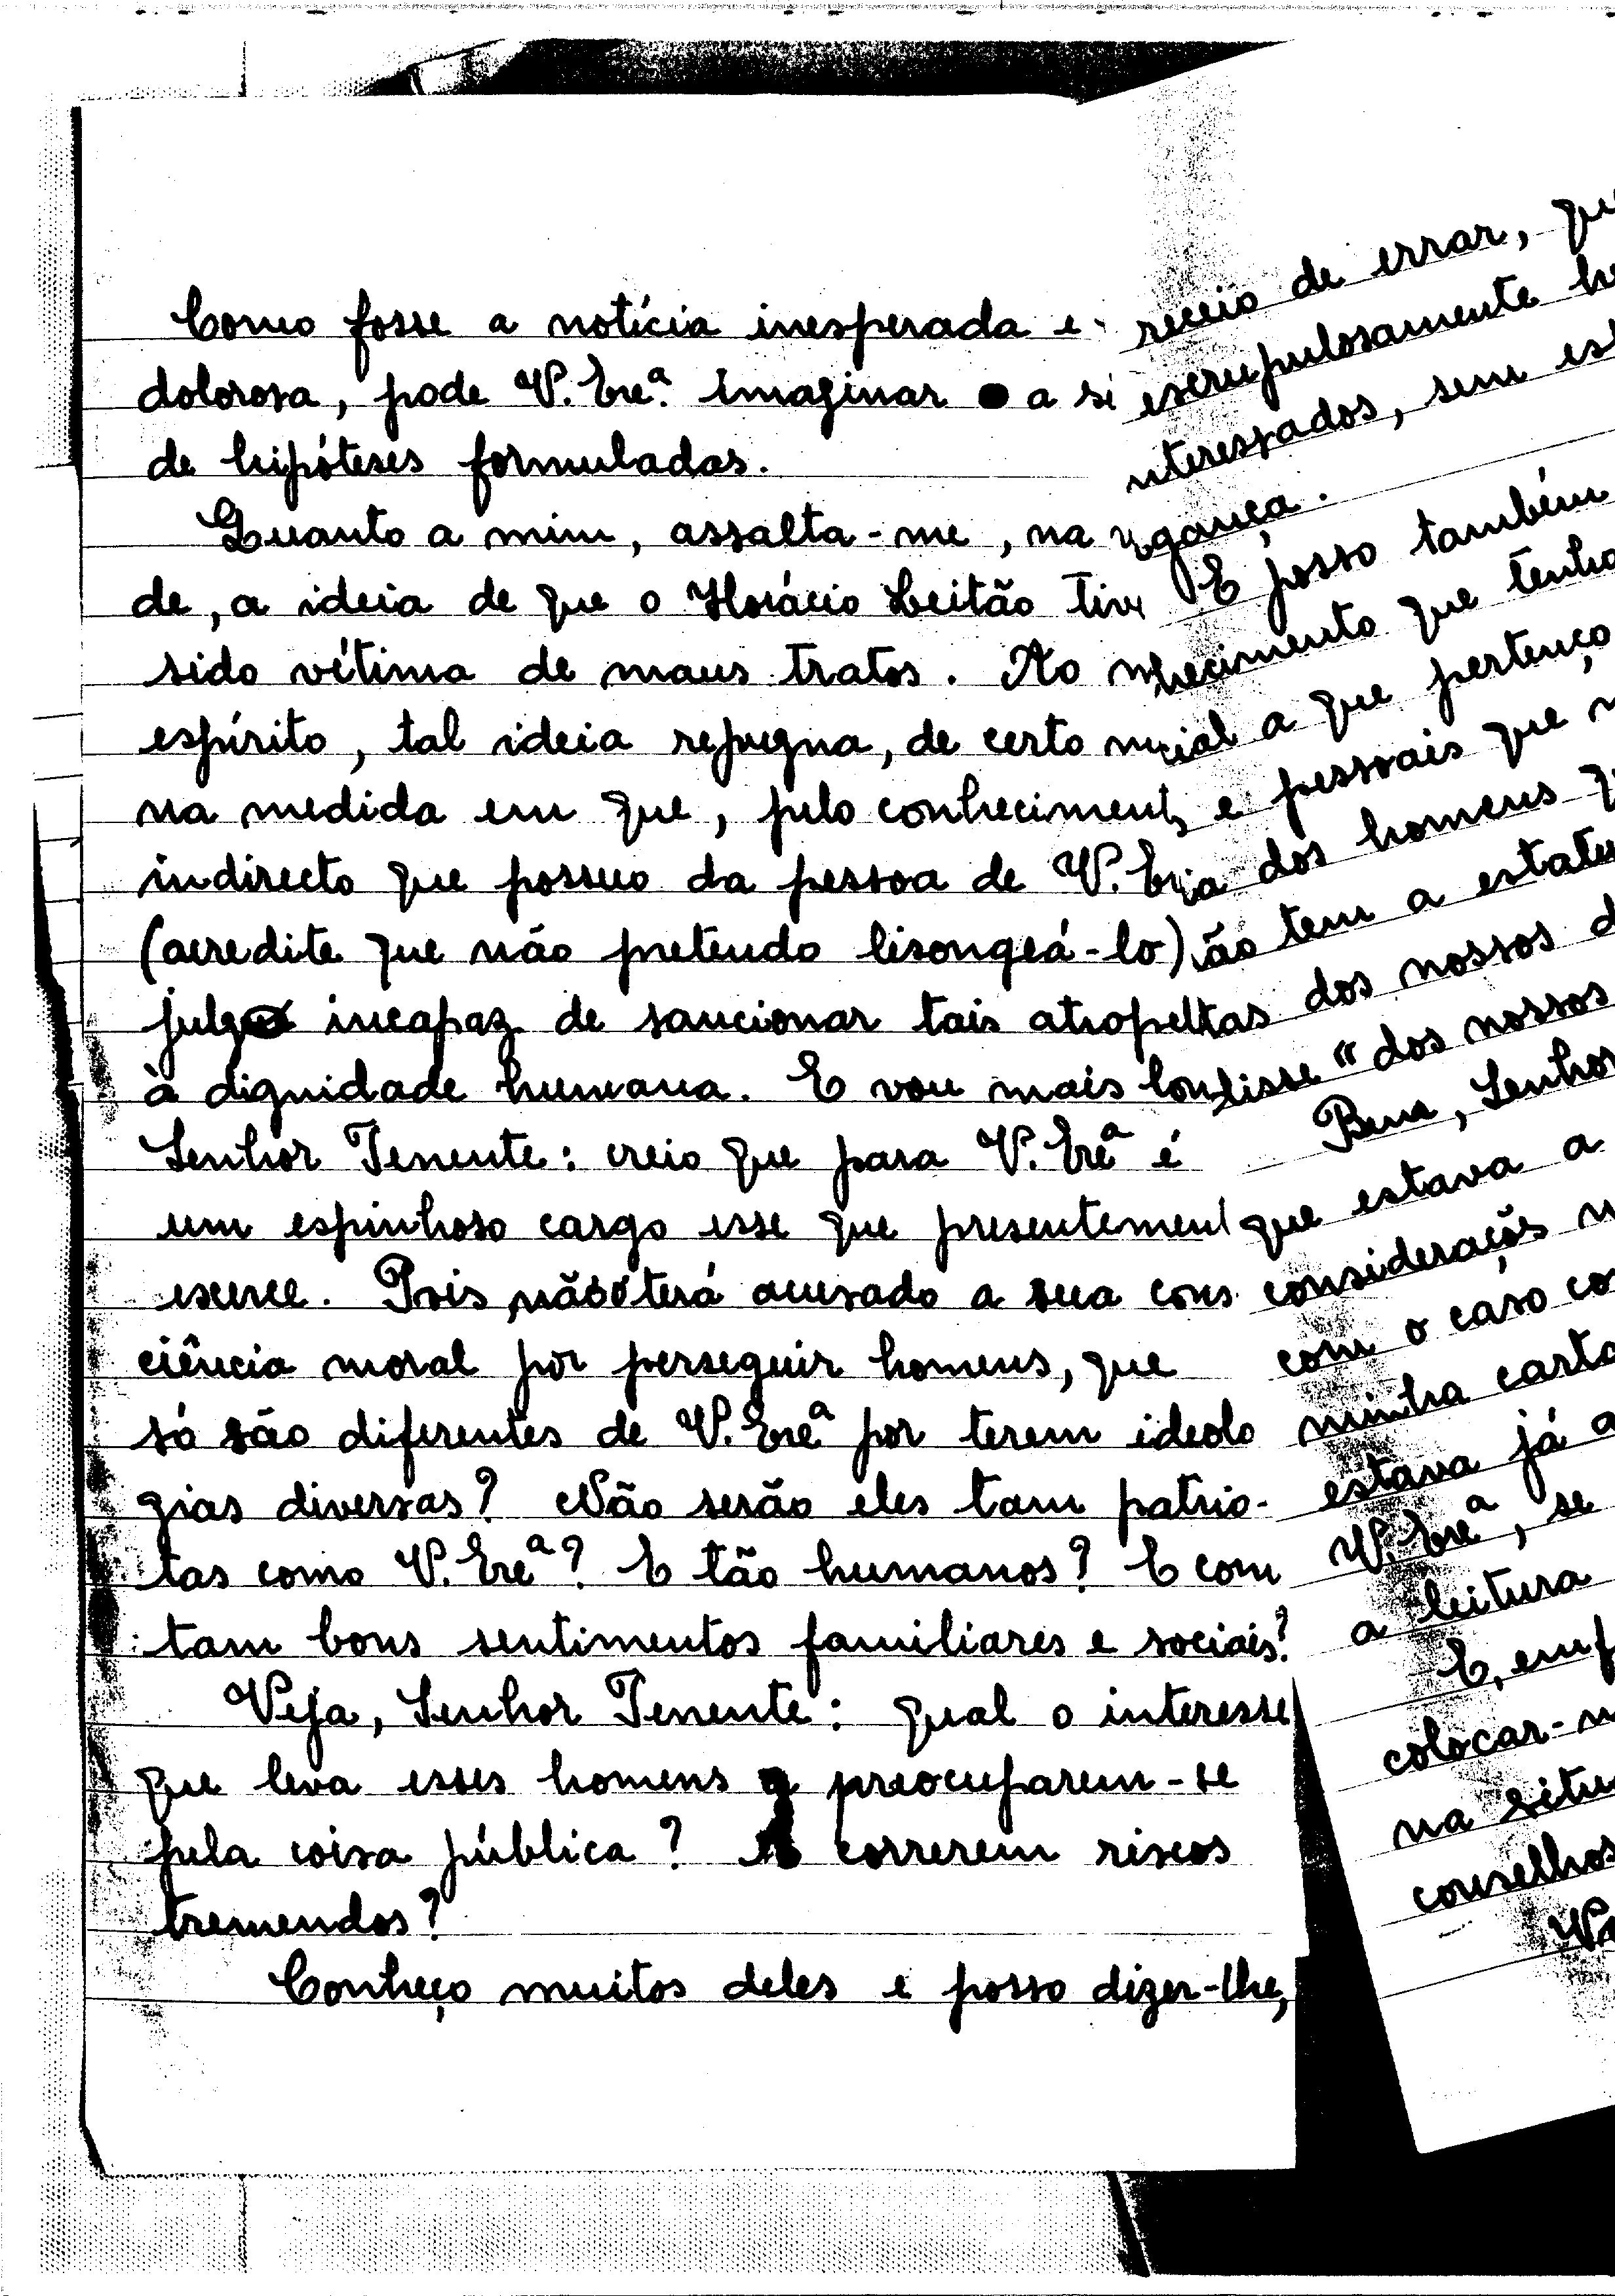 Como fosse a notícia inesperada e
dolorosa, pode V. Exª. imaginar a
de hipóteses formuladas.
Quanto a mim, assalta-me, na
de, a ideia de que o Horácio Leitão
sido vítima de maus tratos. Ao
espírito, tal ideia repugna, de certo
na medida em que, pelo conheciment
indirecto que possuo da pessoa de V.
(acredite que não pretendo lisongeá-lo)
julgo incapaz de sancionar tais
à dignidade humana. E vou mais
Senhor Tenente: creio que para V. Exª é
um espinhoso cargo esse que presentement
exerce. Pois, não o terá acusado a sua cons
ciência moral por perseguir homens, que
só são diferentes de V. Exª por terem ideolo
gias diversas? Não serão eles tam patrio-
tas como V. Exª? E tão humanos? E com
tam bons sentimentos familiares e sociais?
Veja, Senhor Tenente: qual o interesse
que leva esses homens a preocuparem-se
pela coisa pública? A correrem riscos
tremendos?
Conheço muitos deles e posso dizer-lhe,
receio de errar, qu
escrupulosamente h
nteressados, sem es
gança.
E posso também
hecimento que tenho
cial a que pertenço
e pessoais que
dos homens q
ão tem a estatu
dos nossos d
disse "dos nossos
Bem, Senhor
que estava a
considerações
com o caso co
minha carta
estava já a
V. Exª, se
a leitura
E, emp
colocar-m
na situ
conselhos